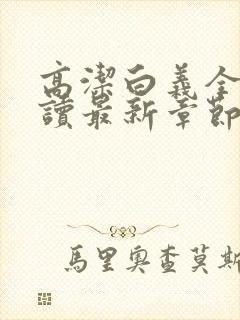 高潔白義全
讀最新章節
馬里奧查莫斯